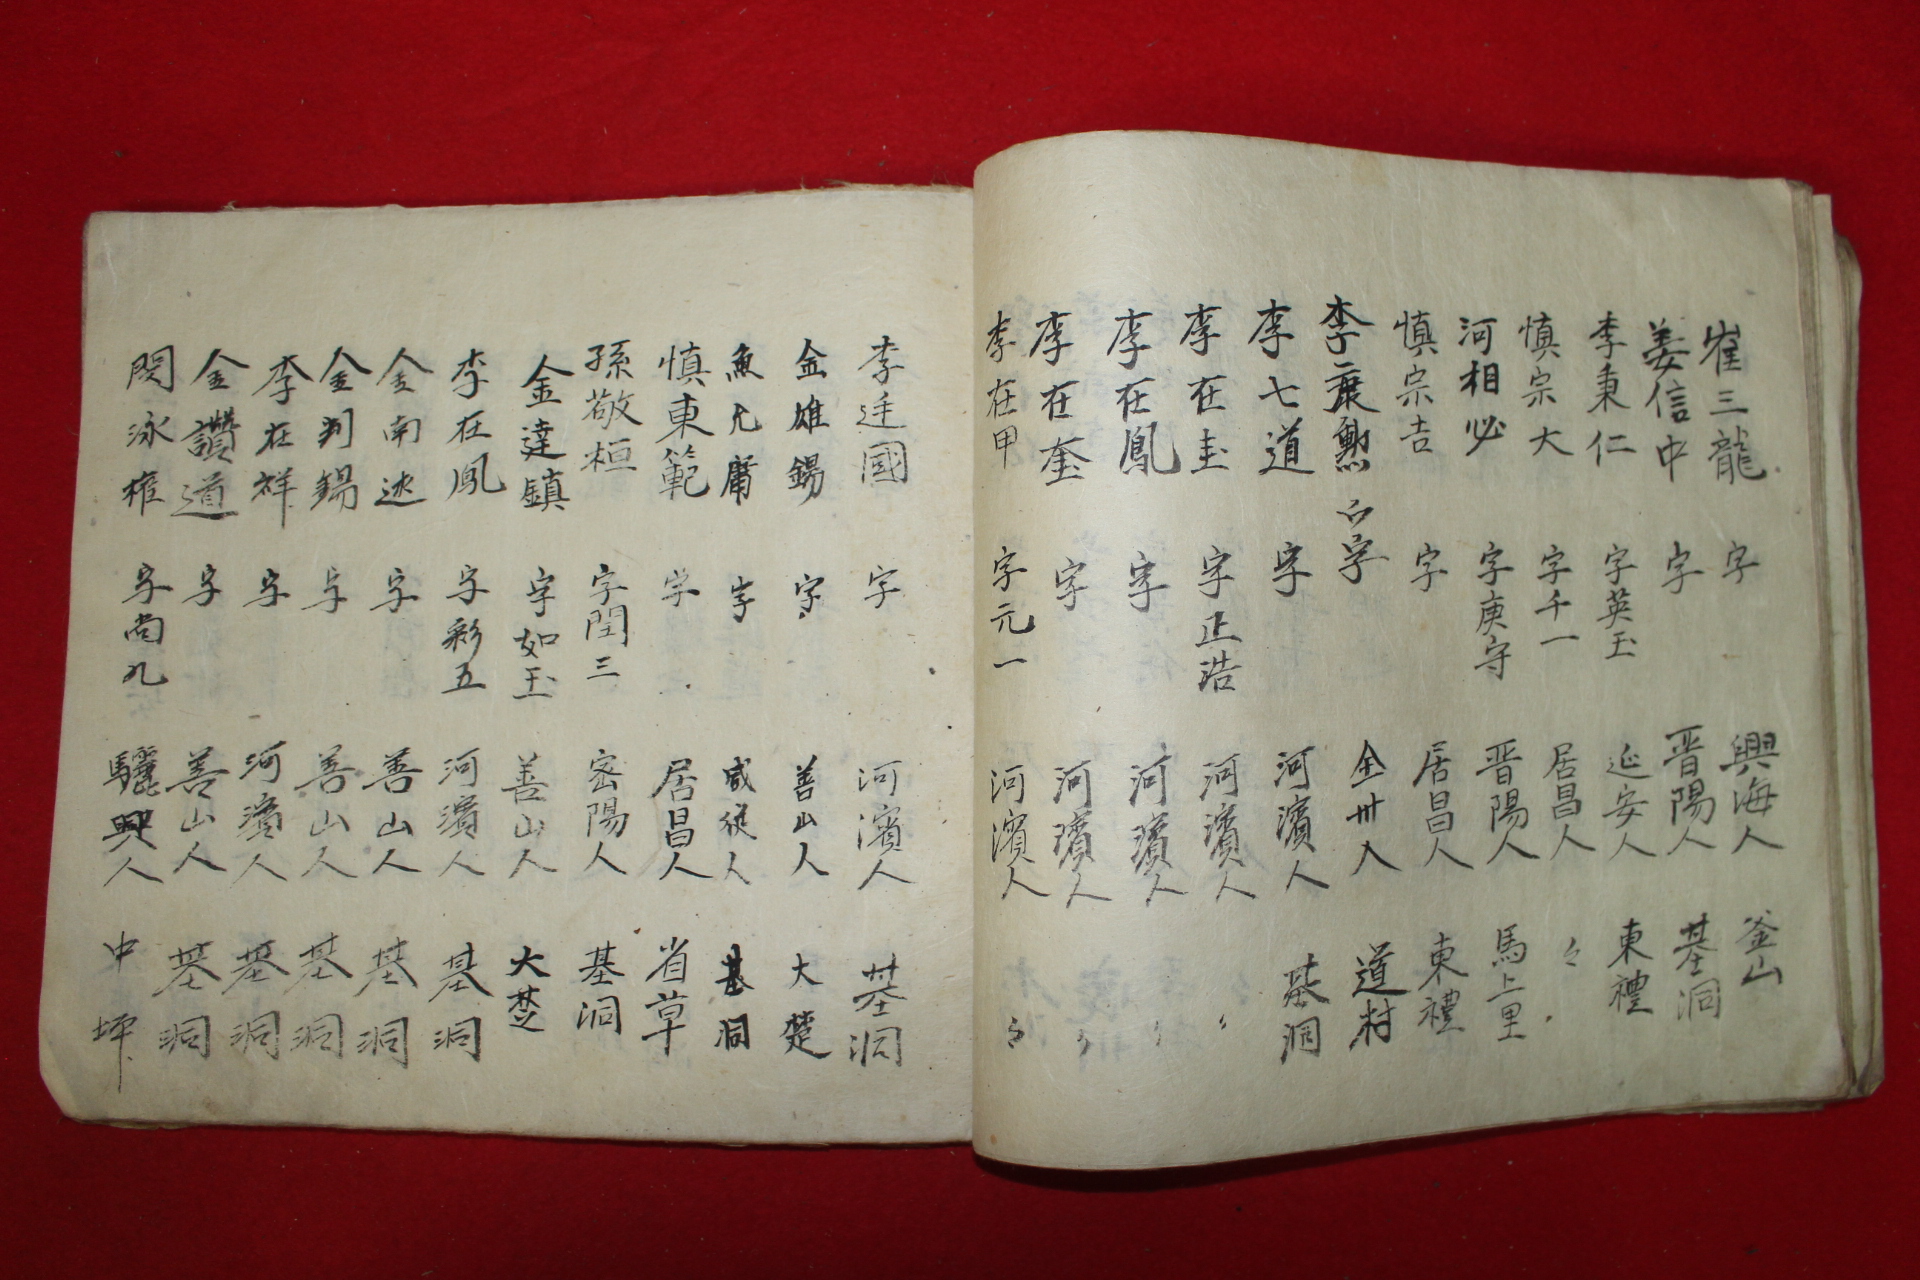 崔三龍 字 興海人 釜山
姜信中 字 晋陽人 基洞
李秉仁 字英玉 延安人 東禮
愼宗大 字千一 居昌人 々
河相必 字庚守 晋陽人 馬上里
愼宗吉 字 居昌人 東禮
李康勲 字 全州人 道村
李七道 字 河濱人 基洞
李在圭 字正浩 河濱人 〃
李在鳳 字 河濱人 〃
李在奎 字 河濱人 〃
李在甲 字元一 河濱人 々
李廷國 字 河濱人 基洞
金雄錫 字 善山人 大楚
魚允庸 字 咸從人 基洞
愼東範 字 居昌人 省草
孫敬桓 字閏三 密陽人 基洞
金達鎮 字如玉 善山人 大楚
李在鳳 字彩五 河濱人 基洞
金南述 字 善山人 基洞
金判錫 字 善山人 基洞
李在祥 字 河濱人 基洞
金讚道 字 善山人 基洞
閔泳權 字尚九 驪興人 中坪